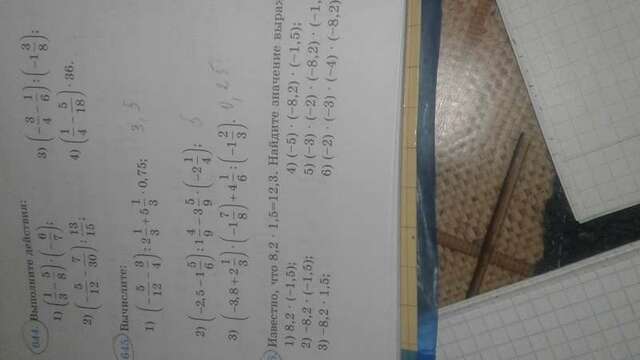 644. Выполните действия:
1) (1/3 − 5/8) : (−6/7);
2) (−5/12 − 7/30) : 13/15;
3) (−3/4 − 1/6) : (−1 3/8);
4) (1/4 − 5/18) · 36.
645. Вычислите:
1) (−5/12 − 3/4) : 2 1/3 + 5 1/3 · 0,75;
3,5
2) (−2,5 − 1 5/6) : 1 4/9 − 3 5/9 · (−2 1/4);
3) (−3,8 + 2 1/3) · (−1 7/8) + 4 1/6 : (−1 2/3) ·
Известно, что 8,2 · 1,5=12,3. Найдите значение
1) 8,2 · (−1,5);
2) −8,2 · (−1,5);
3) −8,2 · 1,5;
4) (−5) · (−8,2) · (−1,5);
5) (−3) · (−2) · (−8,2) · (−1,
6) (−2) · (−3) · (−4) · (−8,2)